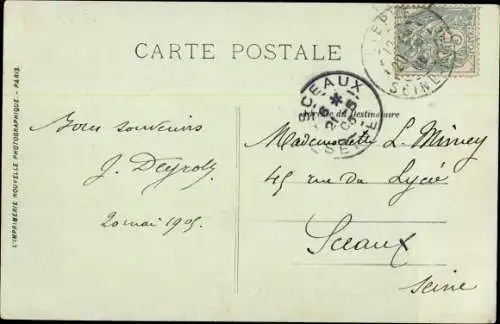 CARTE POSTALE
SCEAUX
SEINE
SEINE
Adresse du Destinataire
L'IMPRIMERIE NOUVELLE PHOTOGRAPHIQUE - PARIS.
Bons souvenirs
20 mai 1905.
Mademoiselle L.
45 rue du Lycée
Sceaux
Seine